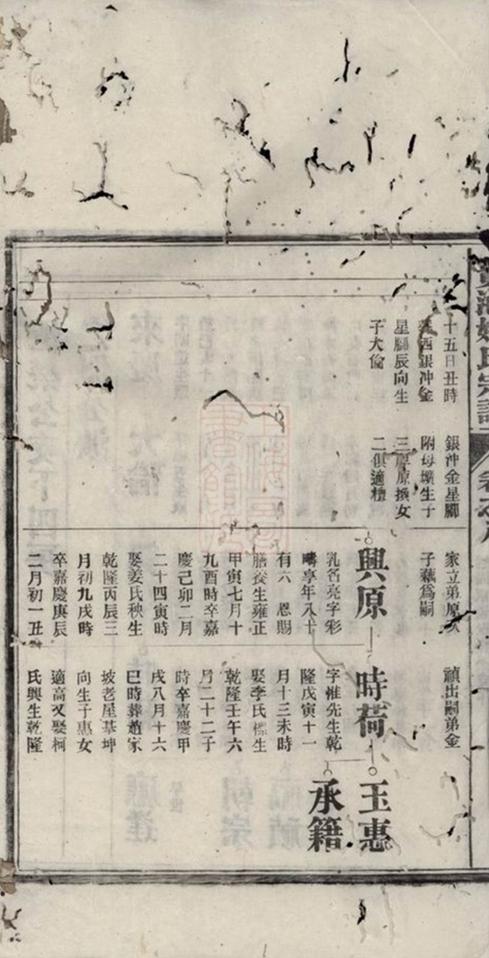 十五日丑時
酉銀冲金
星關辰向生
子大倫
銀冲金星關
附母壙生子
三原換女
二俱適檀
家立弟原
子藕為嗣
禎出嗣弟金
興原
乳名亮字彩
疇享年八十
有六恩賜
膳發生雍正
甲寅七月十
九酉時卒嘉
慶己卯二月
二十四寅時
娶姜氏秧生
乾隆丙辰三
月初九戌時
卒嘉慶庚辰
二月初一丑
時荷
字惟先生乾
隆戊寅十一
月十三未時
娶李氏生
乾隆壬午六
月二十二子
時卒嘉慶甲
戌八月十六
巳時葬趙家
坡老屋基坤
向生子惠女
適高又娶柯
氏興生乾隆
玉惠
承籍